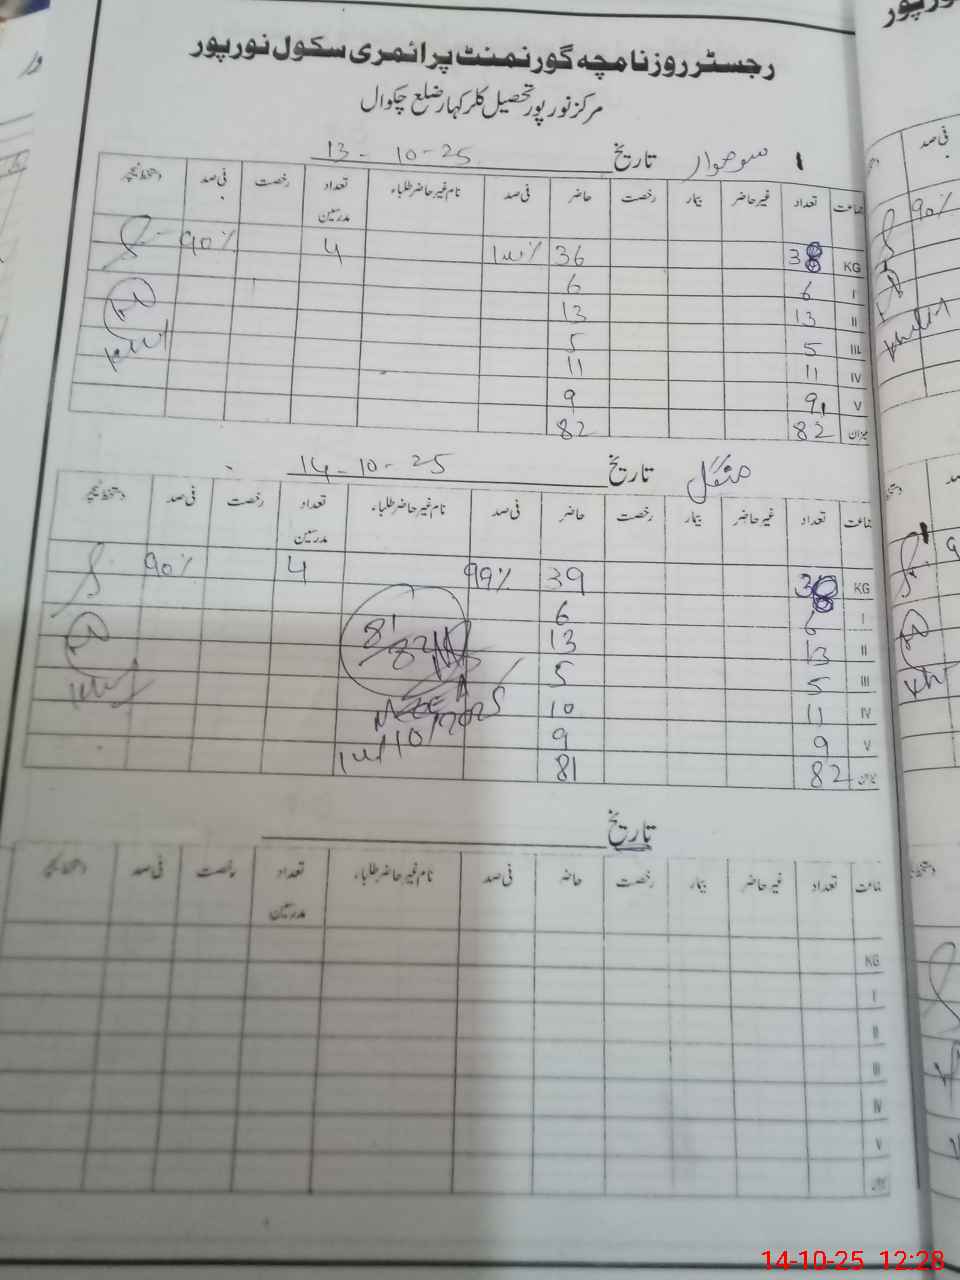 رجسٹر روزنامچہ گورنمنٹ پرائمری سکول نورپور
مرکز نورپور تحصیل کلرکہار ضلع چکوال
1 سوموار تاریخ 13-10-25
جماعت تعداد غیرحاضر بیمار رخصت حاضر فی صد نام غیرحاضر طلباء تعداد مدرسین رخصت فی صد دستخط ٹیچر
KG 38 36 100% 4 90%
I 6 6
II 13 13
III 5 5
IV 11 11
V 9 9
میزان 82 82
منگل تاریخ 14-10-25
جماعت تعداد غیرحاضر بیمار رخصت حاضر فی صد نام غیرحاضر طلباء تعداد مدرسین رخصت فی صد دستخط ٹیچر
KG 38 39 99% 4 90%
I 6 6
II 13 13
III 5 5
IV 11 10
V 9 9
میزان 82 81
81/82
14/10/2025
تاریخ
جماعت تعداد غیرحاضر بیمار رخصت حاضر فی صد نام غیرحاضر طلباء تعداد مدرسین رخصت فی صد دستخط ٹیچر
KG
I
II
III
IV
V
میزان
نورپور
فی صد
90%
14-10-25 12:28